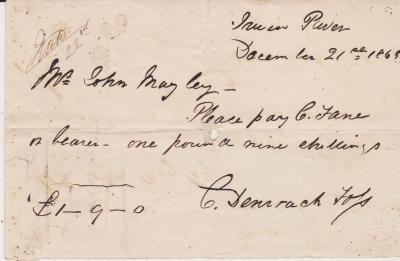 Irwin River
December 21st 186
Mr John Mayley -
Please pay C. Fane
or bearer - one pound nine shillings
£1-9-0
C. Denroach Foss